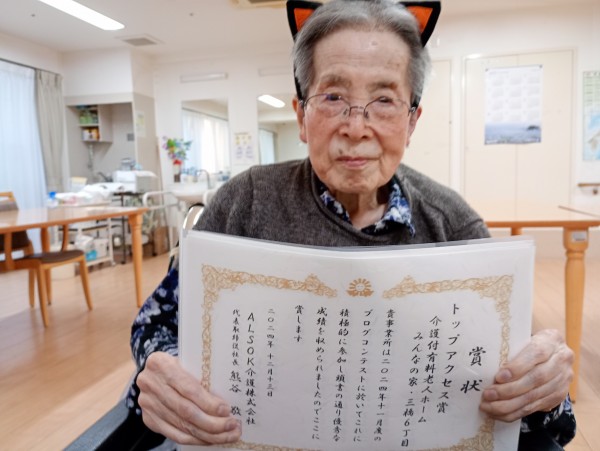 賞状
トップアクセス賞
介護付有料老人ホーム
みんなの家・三橋6丁目
貴事業所は二〇二四年十一月度の
ブログコンテストに於いてこれに
積極的に参加し頭書の通り優秀な
成績を収められましたのでここに
賞します
二〇二四年十二月十三日
ALSOK介護株式会社
代表取締役社長 熊谷 敬